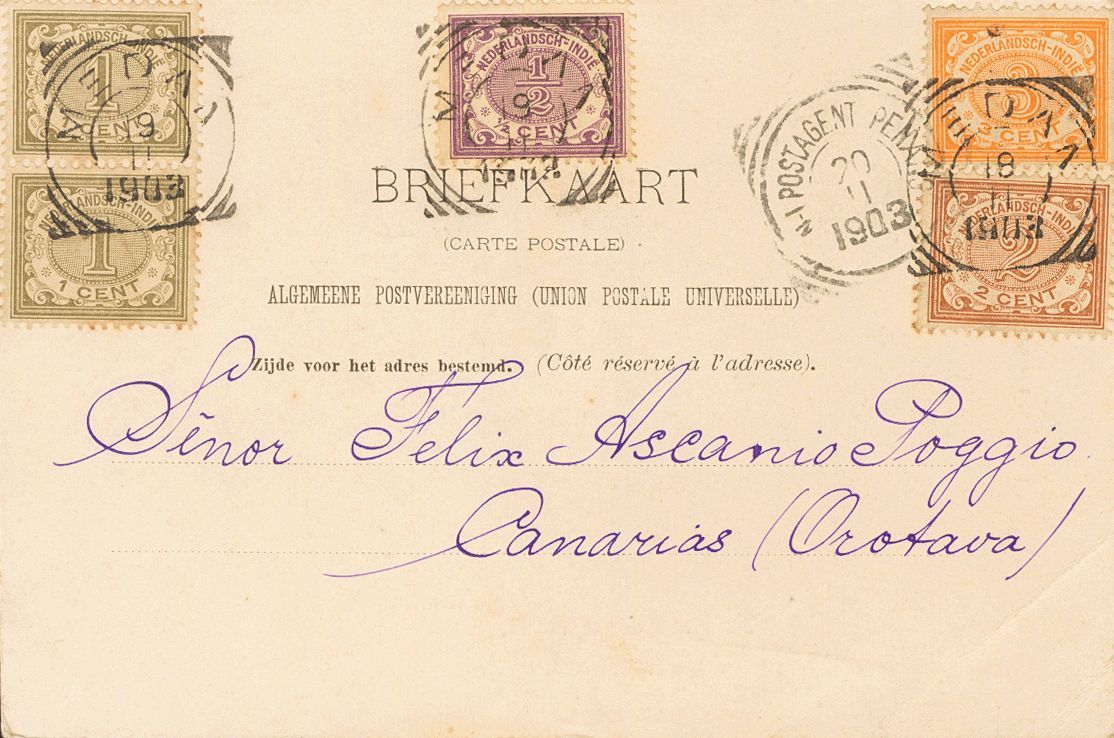 NEDERLANDSCH-INDIË
1
1 CENT
NEDERLANDSCH-INDIË
1
1 CENT
MEDAN
1903
NEDERLANDSCH-INDIË
1/2
1/2 CENT
MEDAN
1903
NEDERLANDSCH-INDIË
3
3 CENT
NEDERLANDSCH-INDIË
2
2 CENT
MEDAN
18
11
1903
N-I POSTAGENT PENANG
20
11
1903
BRIEFKAART
(CARTE POSTALE)
ALGEMEENE POSTVEREENIGING (UNION POSTALE UNIVERSELLE)
Zijde voor het adres bestemd. (Côté réservé à l'adresse).
Sênor Felix Ascanio Poggio
Canarias (Orotava)